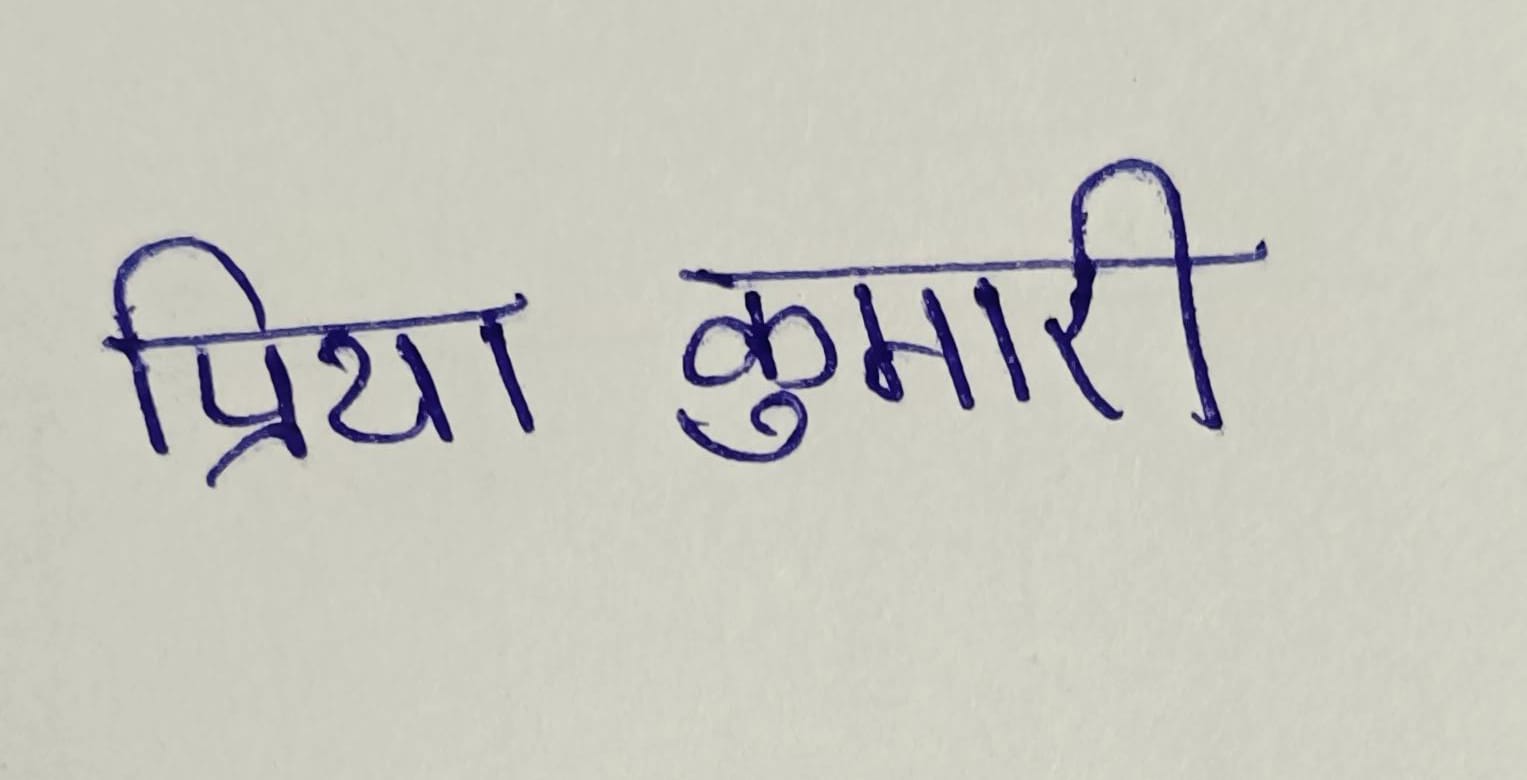 प्रिया कुमारी